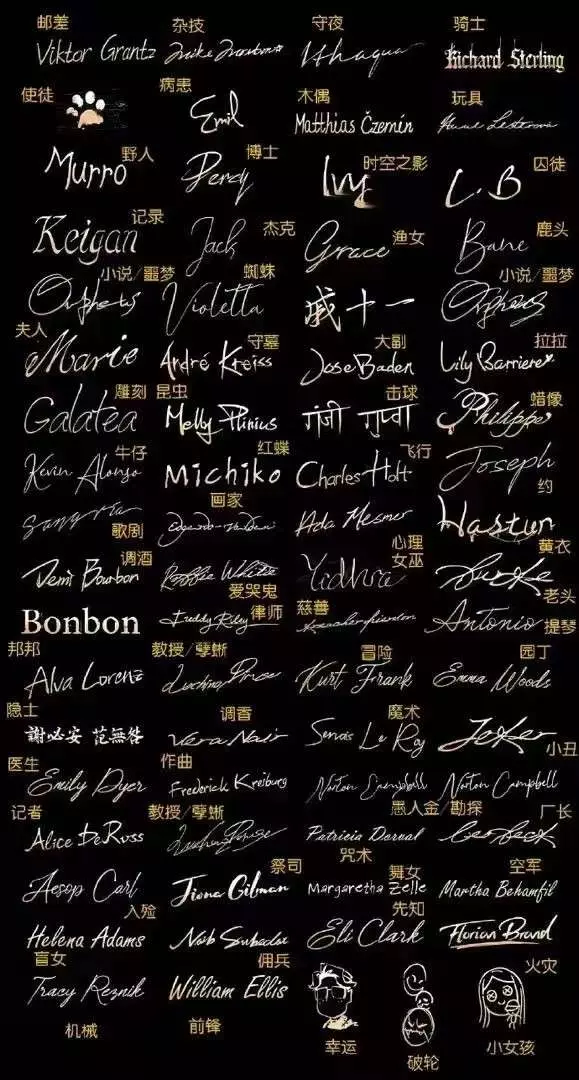 邮差 杂技 守夜 骑士
Viktor Grantz Mike Morton Ithaqua Richard Sterling
使徒 病患 木偶 玩具
Emil Matthias Czernin Anne Lester
野人 博士 时空之影 囚徒
Murro Percy Ivy L.B
记录 杰克 渔女 鹿头
Keigan Jack Grace Bane
小说/噩梦 蜘蛛 小说/噩梦
Orpheus Violetta 戚十一 Orpheus
夫人 守墓 大副 拉拉
Marie André Kreiss Jose Baden Lily Barriere
雕刻 昆虫 击球 蜡像
Galatea Melly Plinius गंजी गुप्ता Philippe
牛仔 红蝶 飞行 约
Kevin Alonso Michiko Charles Holt Joseph
歌剧 画家 心理 黄衣
Sangria Ada Mesmer Hastur
调酒 爱哭鬼 女巫 老头
Demi Bourbon Robbie White Yidhra Burke
邦邦 律师 慈善 提琴
Bonbon Freddy Riley Antonio
隐士 教授/孽蜥 冒险 园丁
Alva Lorenz Luchino Diruse Kurt Frank Emma Woods
調香 魔术 小丑
謝必安 范無咎 Vera Nair Servais Le Roy Joker
医生 作曲 愚人金/勘探
Emily Dyer Frederick Kreiburg Norton Campbell Norton Campbell
记者 教授/孽蜥 咒术 厂长
Alice DeRoss Luchino Diruse Patricia Dorval Leo Beck
入殓 祭司 舞女 空军
Aesop Carl Fiona Gilman Margaretha Zelle Martha Behamfil
盲女 先知 火灾
Helena Adams Naib Subedar Eli Clark Florian Brand
机械 佣兵
Tracy Reznik William Ellis
前锋 幸运 破轮 小女孩